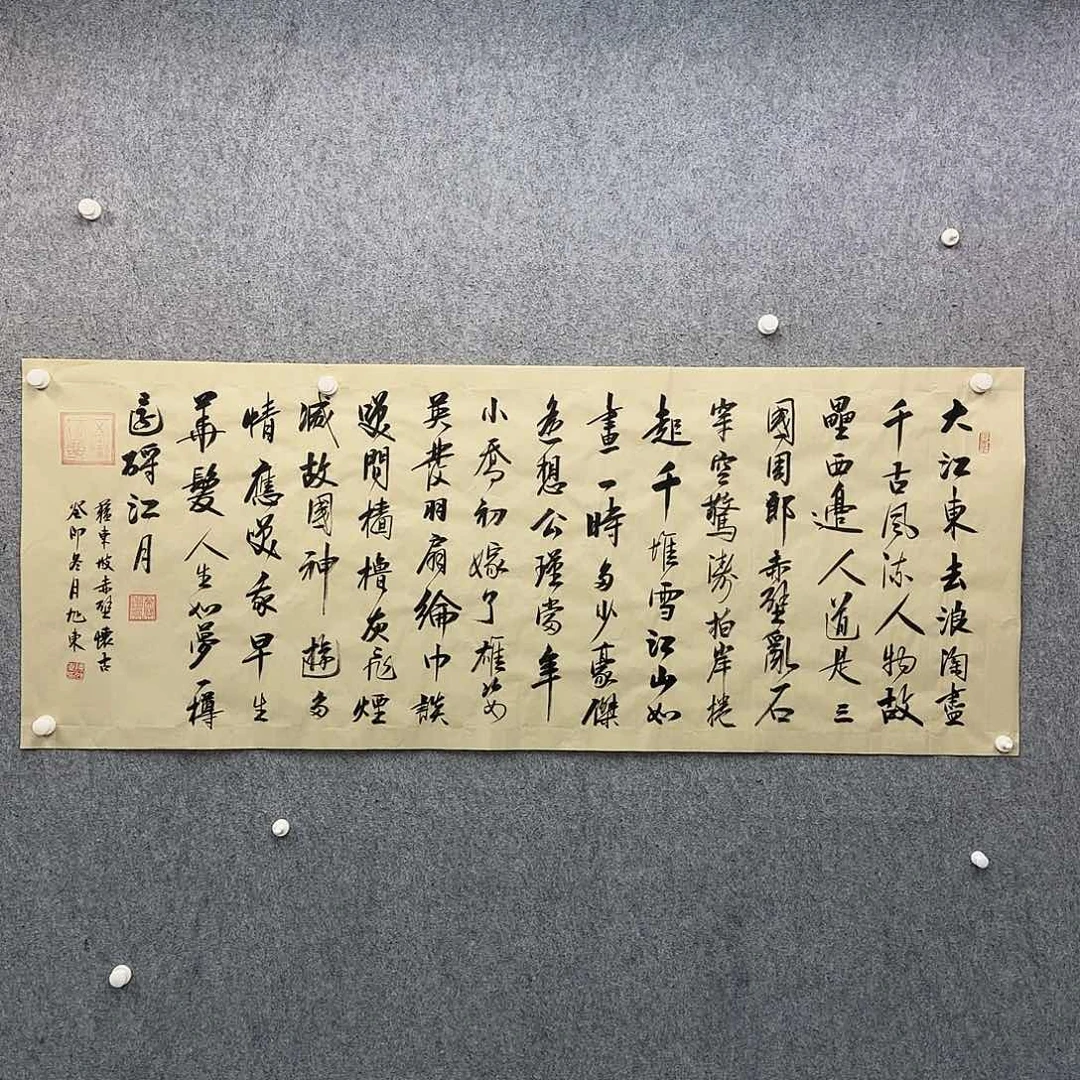 大江東去浪淘盡
千古風流人物故
壘西邊人道是三
國周郎赤壁亂石
穿空驚濤拍岸捲
起千堆雪江山如
畫一時多少豪傑
遙想公瑾當年
小喬初嫁了雄姿
英發羽扇綸巾談
笑間檣櫓灰飛煙
滅故國神遊多
情應笑我早生
華髮人生如夢一樽
還酹江月
蘇東坡赤壁懷古
癸卯冬月旭東